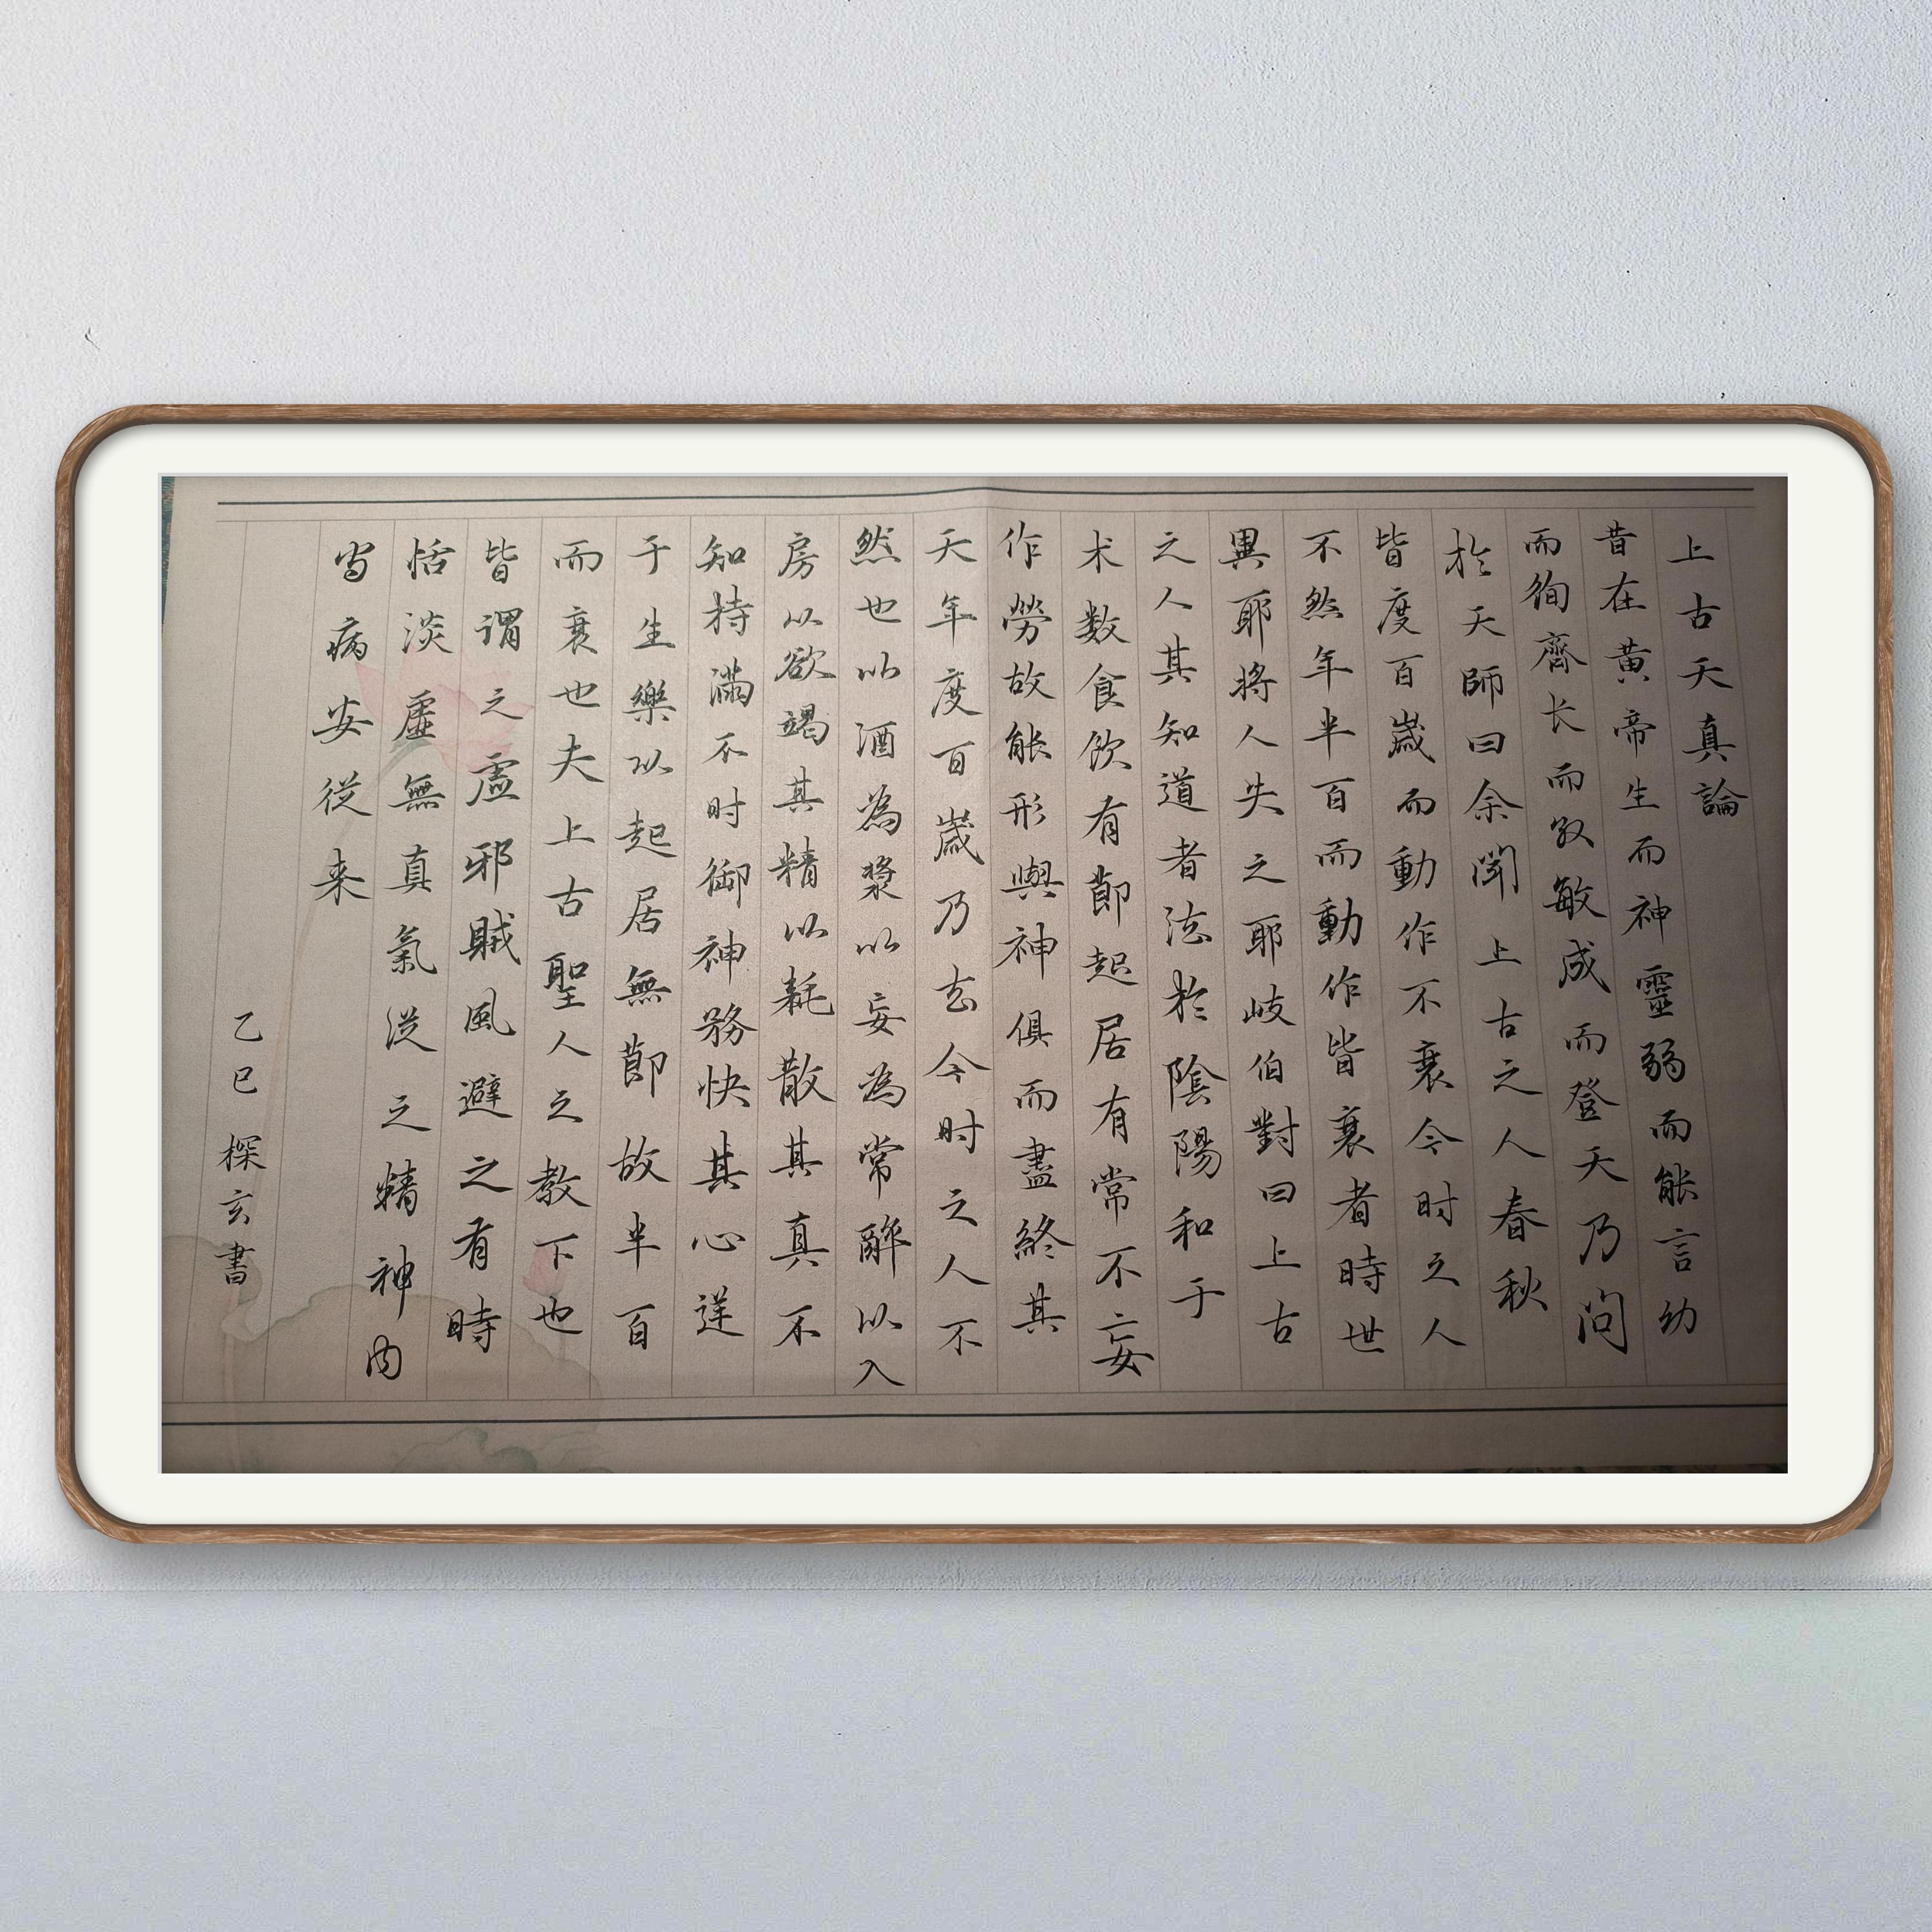 上古天真論
昔在黃帝生而神靈弱而能言幼
而徇齊长而敦敏成而登天乃问
於天師曰余聞上古之人春秋
皆度百歲而動作不衰今时之人
不然年半百而動作皆衰者時世
異耶將人失之耶岐伯對曰上古
之人其知道者法於陰陽和于
术数食飲有節起居有常不妄
作勞故能形與神俱而盡終其
天年度百歲乃去今时之人不
然也以酒為漿以妄為常醉以入
房以欲竭其精以耗散其真不
知持滿不时御神務快其心逆
于生樂以起居無節故半百
而衰也夫上古聖人之教下也
皆謂之虛邪賊風避之有時
恬淡虛無真氣從之精神內
守病安從来
乙巳探玄書